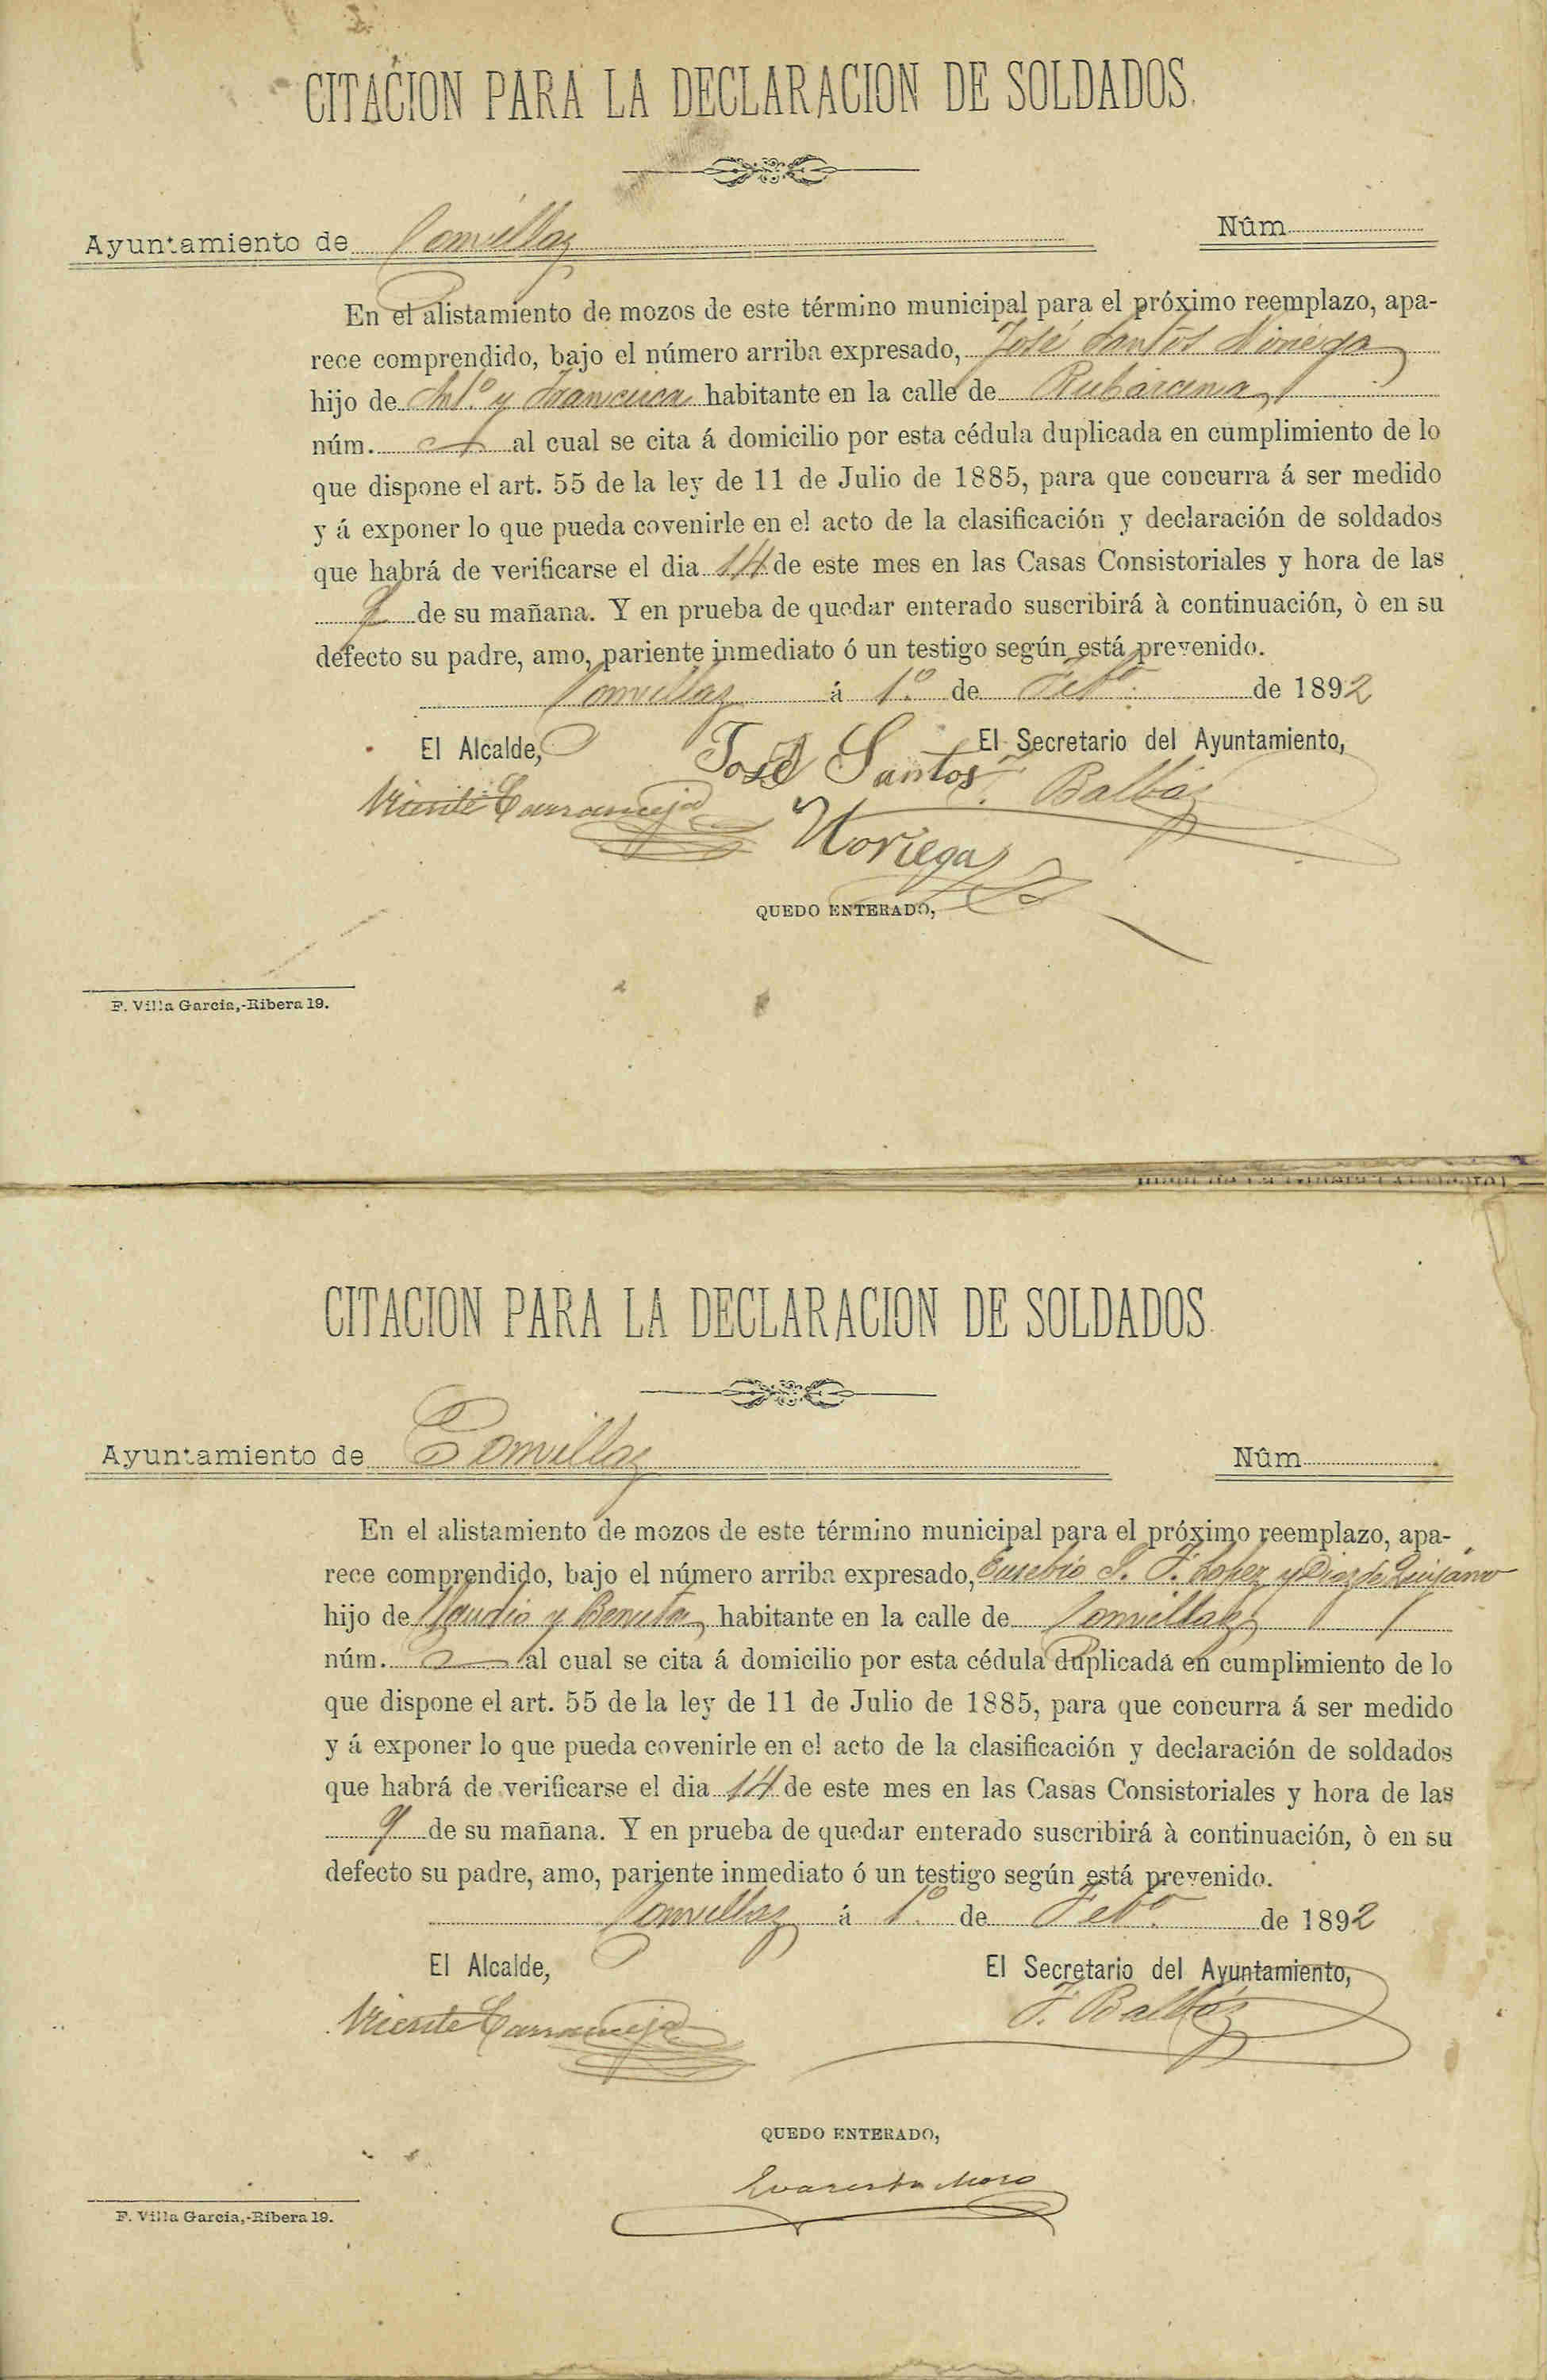 CITACION PARA LA DECLARACION DE SOLDADOS.
Ayuntamiento de Comillas Núm.
En el alistamiento de mozos de este término municipal para el próximo reemplazo, apa-
rece comprendido, bajo el número arriba expresado, José Santos Noriega
hijo de Ant.º y Francisca habitante en la calle de Rubárcena
núm. al cual se cita á domicilio por esta cédula duplicada en cumplimiento de lo
que dispone el art. 55 de la ley de 11 de Julio de 1885, para que concurra á ser medido
y á exponer lo que pueda covenirle en el acto de la clasificación y declaración de soldados
que habrá de verificarse el dia 14 de este mes en las Casas Consistoriales y hora de las
9 de su mañana. Y en prueba de quedar enterado suscribirá à continuación, ò en su
defecto su padre, amo, pariente inmediato ó un testigo según está prevenido.
Comillas á 1.º de Feb.º de 1892
El Alcalde, El Secretario del Ayuntamiento,
José Santos
Vicente F. Balbás
Noriega
QUEDO ENTERADO,
F. Villa García,-Ribera 19.
CITACION PARA LA DECLARACION DE SOLDADOS.
Ayuntamiento de Comillas Núm.
En el alistamiento de mozos de este término municipal para el próximo reemplazo, apa-
rece comprendido, bajo el número arriba expresado, Eusebio S. F. Lopez y Diaz de Quijano
hijo de Claudio y Benita habitante en la calle de Comillas
núm. al cual se cita á domicilio por esta cédula duplicada en cumplimiento de lo
que dispone el art. 55 de la ley de 11 de Julio de 1885, para que concurra á ser medido
y á exponer lo que pueda covenirle en el acto de la clasificación y declaración de soldados
que habrá de verificarse el dia 14 de este mes en las Casas Consistoriales y hora de las
9 de su mañana. Y en prueba de quedar enterado suscribirá à continuación, ò en su
defecto su padre, amo, pariente inmediato ó un testigo según está prevenido.
Comillas á 1.º de Feb.º de 1892
El Alcalde, El Secretario del Ayuntamiento,
Vicente F. Balbás
QUEDO ENTERADO,
Evaristo Moro
F. Villa García,-Ribera 19.